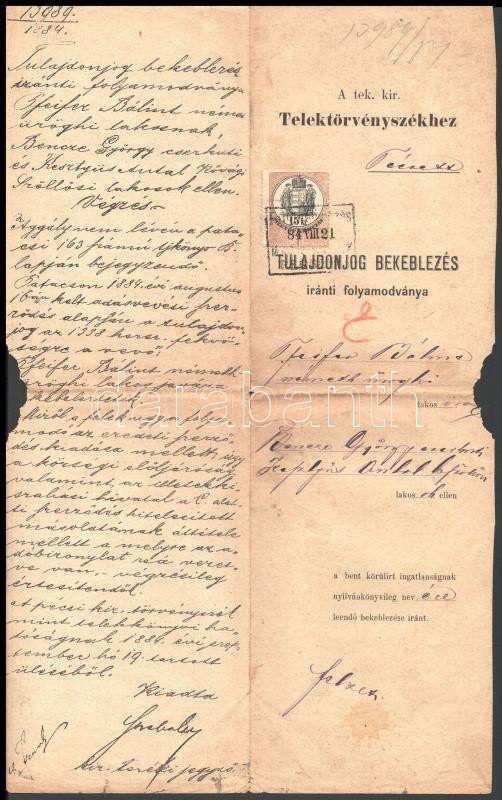 13989.
1884.
Tulajdonjog bekeblezés
iránti folyamodványa
Pfeifer Bálint német
ürögi lakosnak,
Bencze György cserkuti
és Kesztyüs Antal Kővágó
Szöllösi lakosok ellen.
Végzés.
Aggály nem lévén a pata-
csi 163 számú tjkönyv B.
lapján bejegyzendő.
Patacson 1884. évi augusztus
16án kelt adásvevési szer-
ződés alapján a tulajdon-
jog az 1338
ségre a vevő
Pfeifer Bálint német
ürögi lakos javára
bekebeleztetik.
Miről a felek ugy a folya-
madó az eredeti szerző-
dés kiadása mellett, ugy
a községi elöljáróság
valamint az illetékki-
szabási hivatal a C. alat-
ti szerződés hitelesített
másolatának áttétele
mellett a melyre az a-
dóbizonylat reá vezet-
ve van, végzésileg
értesitendők.
A pécsi kir. törvényszék
mint telekkönyvi ha-
tóságnak 1884. évi szep-
tember hó 19. tartott
üléséből.
Kiadta
kir. tszéki jegyző.
13989/
A tek. kir.
Telektörvényszékhez
Pécsett
84 VIII 21
TULAJDONJOG BEKEBLEZÉS
iránti folyamodványa
Pfeifer Bálint
németh ürögi
lakos
Bencze György cserkuti
Kesztyüs Antal
lakosok ellen
a bent körülirt ingatlanságnak
nyilvánkönyvileg nev
leendő bekeblezése iránt.
darabanth